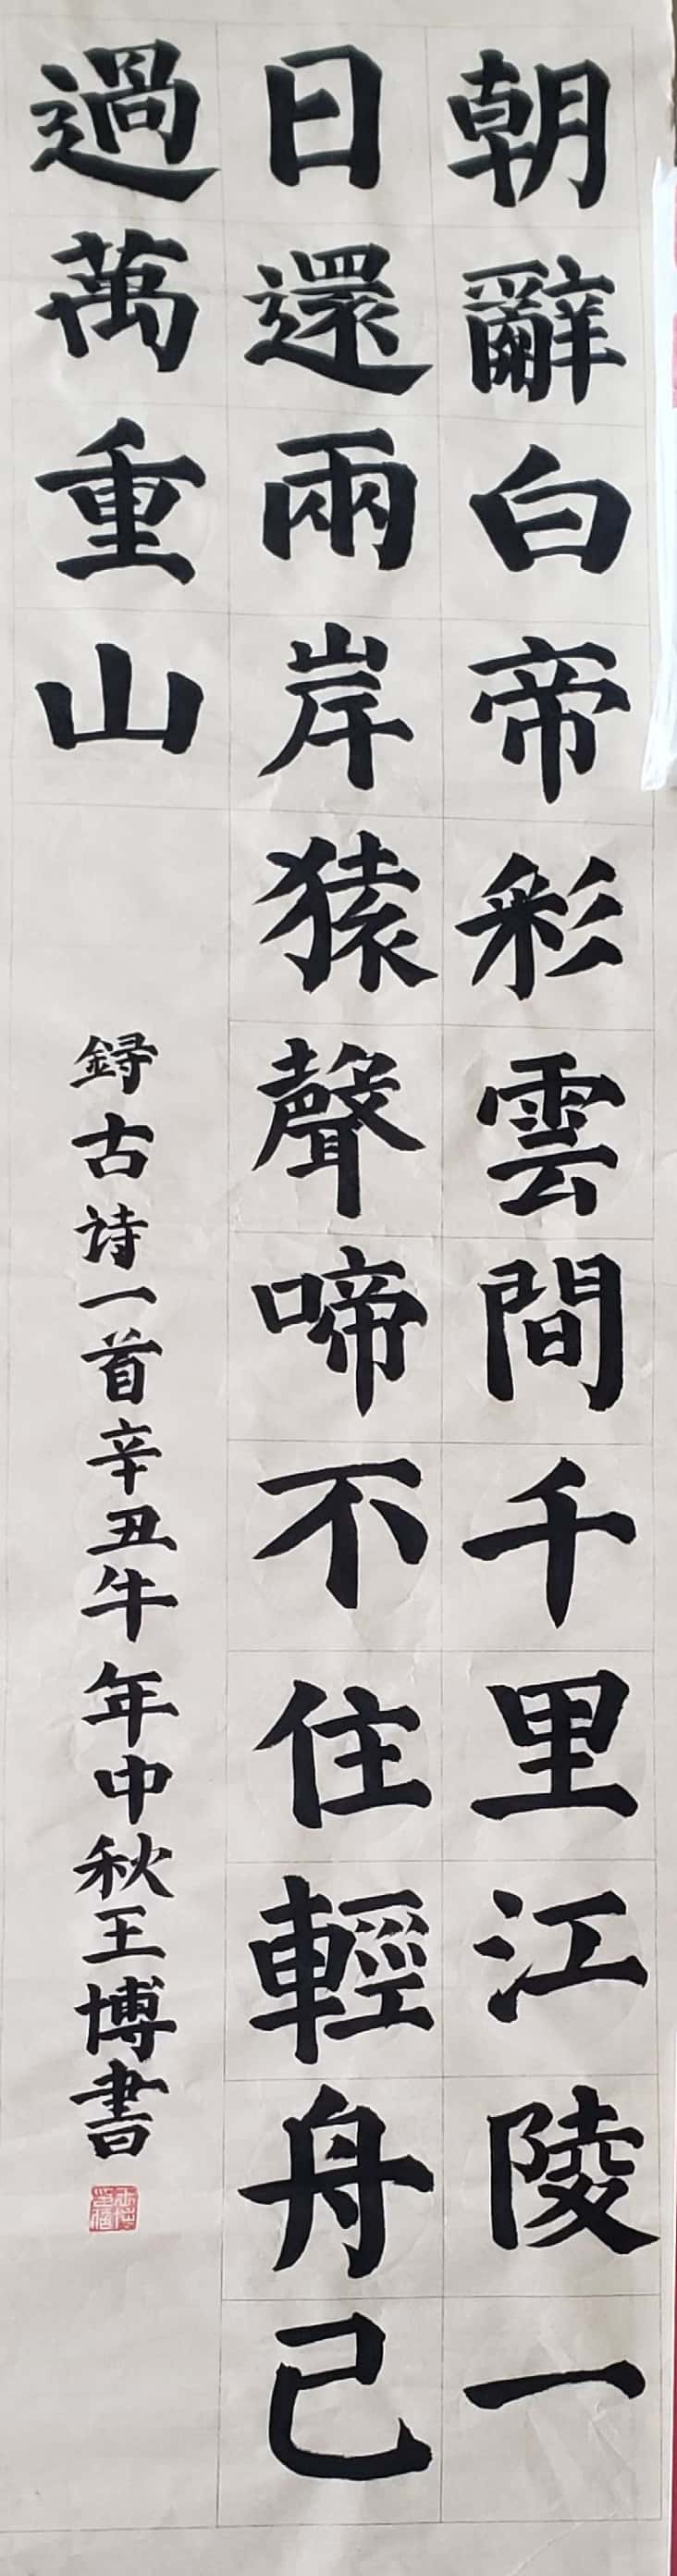 朝辭白帝彩雲間千里江陵一
日還兩岸猿聲啼不住輕舟己
過萬重山
録古诗一首辛丑牛年中秋王博書